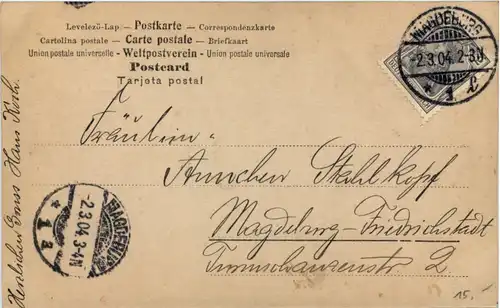 Levelező-Lap. — Postkarte — Correspondenzkarte
Cartolina postale — Carte postale — Briefkaart
Union postale universelle - Weltpostverein - Union postale universale
Postcard
Tarjeta postal
MAGDEBURG
-2.3.04. 2-3N.
* 1 z
Fräulein
Annchen Stahlkopf
Magdeburg-Friedrichstadt
Turmschanzenstr. 2
MAGDEBURG
-2.3.04. 3-4N
* 1 a
Herzlichen Gruss Hans Koch.
15.-